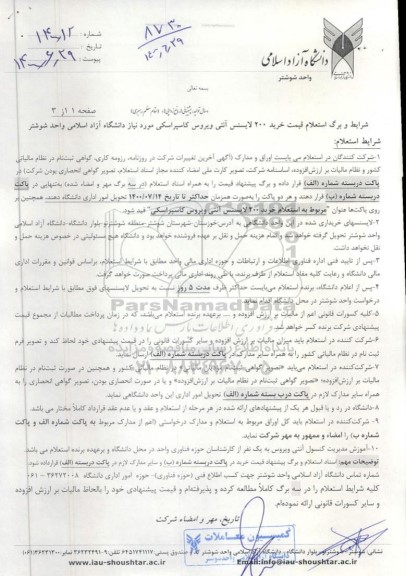 دانشگاه آزاد اسلامی
واحد شوشتر
شماره :
تاریخ :
پیوست :
۸۷۳۰
بسمه تعالی
صفحه ۱ از ۳
شرایط و برگ استعلام قیمت خرید ۲۰۰ لایسنس آنتی ویروس کاسپراسکی مورد نیاز دانشگاه آزاد اسلامی واحد شوشتر
شرایط استعلام:
۱-شرکت کنندگان در استعلام می بایست اوراق و مدارک (آگهی آخرین تغییرات شرکت در روزنامه، رزومه کاری، گواهی ثبتنام در نظام مالیاتی
کشور و نظام مالیات بر ارزش افزوده، اساسنامه شرکت، تصویر کارت ملی امضاء کننده مجاز اسناد استعلام، تصویر گواهی انحصاری بودن شرکت) در
پاکت دربسته شماره (الف) قرار داده و برگ پیشنهاد قیمت را به همراه اسناد استعلام (در سه برگ مهر و امضاء شده) به‌تنهایی در پاکت
دربسته شماره (ب) قرار دهند و هر دو پاکت را به‌صورت همزمان حداکثر تا تاریخ ۱۴۰۰/۰۷/۱۴ تحویل امور اداری دانشگاه دهند، همچنین بر
روی پاکت‌ها عنوان "مربوط به استعلام خرید ۲۰۰ لایسنس آنتی ویروس کاسپراسکی" قید شود.
۲-لایسنسهای خریداری شده در محل دانشگاه به آدرس خوزستان-شهرستان شوشتر-منطقه شوشتر نو-بلوار دانشگاه-دانشگاه آزاد اسلامی
واحد شوشتر تحویل گرفته خواهد شد و انجام هزینه حمل و نقل بر عهده فروشنده خواهد بود و دانشگاه هیچ مسئولیتی در خصوص هزینه حمل و
نقل نخواهد داشت.
۳-پس از تایید فنی اداره فناوری اطلاعات و ارتباطات و حوزه اداری مالی واحد مطابق با شرایط استعلام، براساس قوانین و مقررات اداری
مالی دانشگاه و رعایت کلیه مفاد استعلام از طرف برنده، با طی روند اداری مالی پرداخت صورت خواهد گرفت.
۴-پس از اعلام دانشگاه، برنده استعلام می‌بایست حداکثر ظرف مدت ۵ روز نسبت به تحویل لایسنسهای فوق مطابق با شرایط استعلام و
درخواست واحد شوشتر در محل دانشگاه اقدام نماید.
۵-کلیه کسورات قانونی اعم از مالیات بر ارزش افزوده و ... برعهده برنده استعلام می‌باشد، که در زمان پرداخت مطالبات از مجموع قیمت
پیشنهادی شرکت برنده کسر خواهد شد.
۶-شرکت کننده در استعلام باید میزان مالیات بر ارزش افزوده و سایر کسورات قانونی را در قیمت پیشنهادی خود لحاظ کند و تصویر فرم
ثبت نام در نظام مالیاتی کشور را به همراه سایر مدارک در پاکت دربسته شماره (الف) ارسال نماید.
مالیات بر ارزش‌افزوده» «تصویر گواهی ثبتنام در نظام مالیات بر ارزش‌افزوده» و یا در صورت انحصاری بودن، تصویر گواهی انحصاری را به
همراه سایر مدارک لازم در پاکت درب بسته شماره (الف) تحویل امور اداری این واحد دانشگاهی نماید.
۸-دانشگاه در رد و یا قبول هر یک از پیشنهادهای ارائه شده در هر مرحله از استعلام و عقد و یا عدم عقد قرارداد کاملاً مختار می باشد.
۹-شرکت کننده در استعلام باید کل اوراق مربوط به استعلام و مدارک درخواستی (اعم از مدارک مربوط به پاکت شماره الف و پاکت
شماره ب) را امضاء و ممهور به مهر شرکت نماید.
۱۰-آموزش مدیریت کنسول آنتی ویروس به یک نفر از کارشناسان حوزه فناوری واحد در محل دانشگاه و برعهده برنده استعلام می باشد.
توضیحات مهم: اسناد استعلام و برگ پیشنهاد قیمت خرید در پاکت دربسته شماره (ب) و سایر مدارک لازم در پاکت دربسته (الف) قرارداده شود.
شماره تماس دانشگاه آزاد اسلامی واحد شوشتر جهت کسب اطلاع فنی (حوزه فناوری)- حوزه امور اداری دانشگاه ۳۶۲۷۲۰۰۸ - ۰۶۱
کلیه شرایط استعلام را در سه برگ کاملاً مطالعه کرده و پذیرفته‌ام و قیمت پیشنهادی خود را بالحاظ مالیات بر ارزش افزوده
و سایر کسورات قانونی ارائه نموده‌ام.
تاریخ، مهر و امضاء شرکت
کمیسیون معاملات
ParsNamadData
www.iau-shoushtar.ac.ir
Email:info@iau-shoushtar.ac.ir